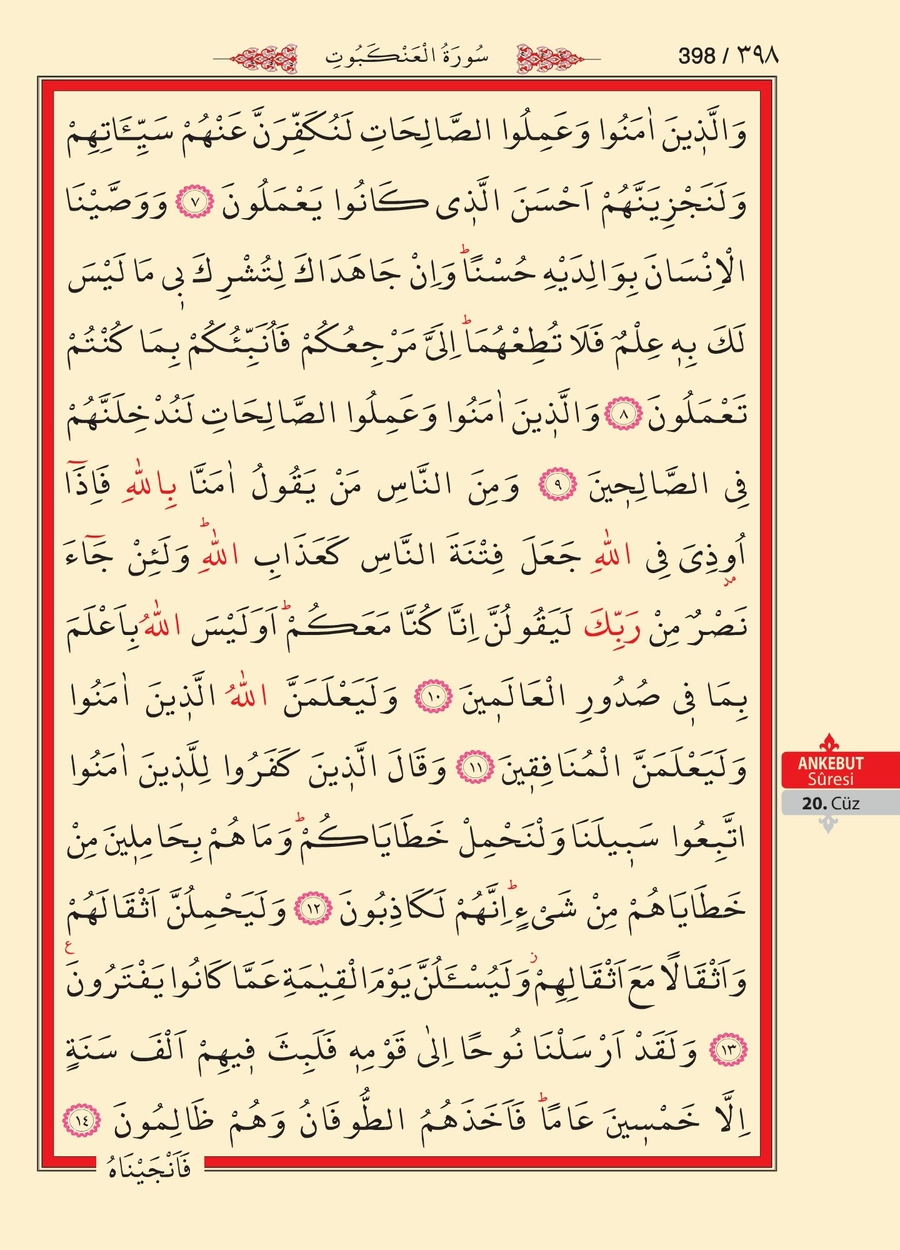 سُورَةُ الْعَنْكَبُوتِ
398 / ٣٩٨
وَالَّذ۪ينَ اٰمَنُوا وَعَمِلُوا الصَّالِحَاتِ لَنُكَفِّرَنَّ عَنْهُمْ سَيِّـَٔاتِهِمْ
وَلَنَجْزِيَنَّهُمْ اَحْسَنَ الَّذ۪ى كَانُوا يَعْمَلُونَ ﴿٧﴾ وَوَصَّيْنَا
الْاِنْسَانَ بِوَالِدَيْهِ حُسْنًاۜ وَاِنْ جَاهَدَاكَ لِتُشْرِكَ ب۪ى مَا لَيْسَ
لَكَ بِه۪ عِلْمٌ فَلَا تُطِعْهُمَاۜ اِلَيَّ مَرْجِعُكُمْ فَاُنَبِّئُكُمْ بِمَا كُنْتُمْ
تَعْمَلُونَ ﴿٨﴾ وَالَّذ۪ينَ اٰمَنُوا وَعَمِلُوا الصَّالِحَاتِ لَنُدْخِلَنَّهُمْ
فِى الصَّالِح۪ينَ ﴿٩﴾ وَمِنَ النَّاسِ مَنْ يَقُولُ اٰمَنَّا بِاللّٰهِ فَاِذَٓا
اُو۫ذِىَ فِى اللّٰهِ جَعَلَ فِتْنَةَ النَّاسِ كَعَذَابِ اللّٰهِۜ وَلَئِنْ جَٓاءَ
نَصْرٌ مِنْ رَبِّكَ لَيَقُولُنَّ اِنَّا كُنَّا مَعَكُمْۜ اَوَلَيْسَ اللّٰهُ بِاَعْلَمَ
بِمَا ف۪ى صُدُورِ الْعَالَم۪ينَ ﴿١٠﴾ وَلَيَعْلَمَنَّ اللّٰهُ الَّذ۪ينَ اٰمَنُوا
وَلَيَعْلَمَنَّ الْمُنَافِق۪ينَ ﴿١١﴾ وَقَالَ الَّذ۪ينَ كَفَرُوا لِلَّذ۪ينَ اٰمَنُوا
اتَّبِعُوا سَب۪يلَنَا وَلْنَحْمِلْ خَطَايَاكُمْۜ وَمَا هُمْ بِحَامِل۪ينَ مِنْ
خَطَايَاهُمْ مِنْ شَىْءٍۜ اِنَّهُمْ لَكَاذِبُونَ ﴿١٢﴾ وَلَيَحْمِلُنَّ اَثْقَالَهُمْ
وَاَثْقَالًا مَعَ اَثْقَالِهِمْۘ وَلَيُسْـَٔلُنَّ يَوْمَ الْقِيٰمَةِ عَمَّا كَانُوا يَفْتَرُونَ ع
﴿١٣﴾ وَلَقَدْ اَرْسَلْنَا نُوحًا اِلٰى قَوْمِه۪ فَلَبِثَ ف۪يهِمْ اَلْفَ سَنَةٍ
اِلَّا خَمْس۪ينَ عَامًاۜ فَاَخَذَهُمُ الطُّوفَانُ وَهُمْ ظَالِمُونَ ﴿١٤﴾
فَاَنْجَيْنَاهُ
ANKEBUT
Sûresi
20. Cüz